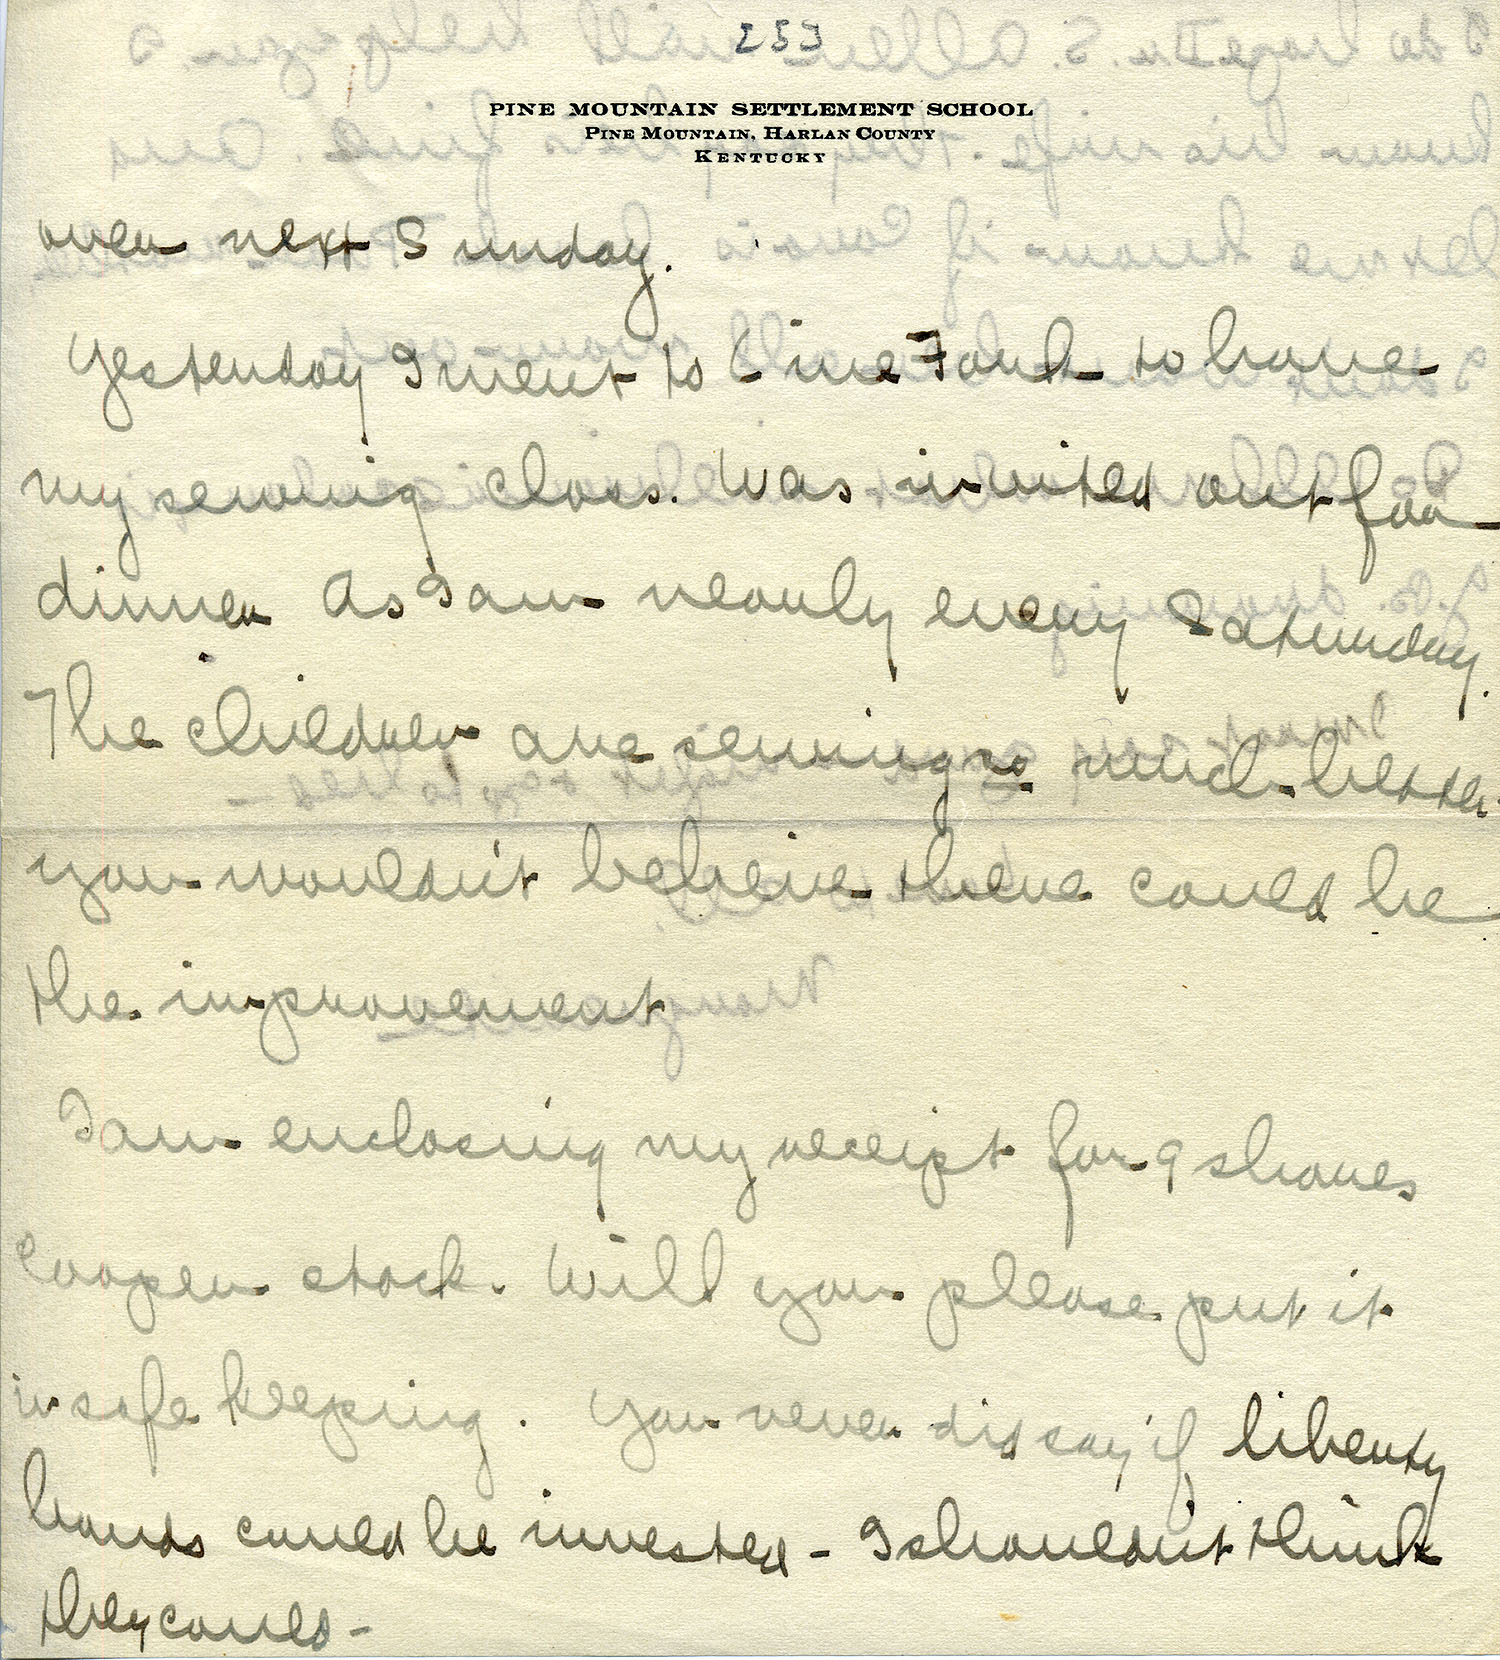 253
PINE MOUNTAIN SETTLEMENT SCHOOL
PINE MOUNTAIN, HARLAN COUNTY
KENTUCKY
over next Sunday.
Yesterday I went to Line Fork to have
my sewing class. Was invited out for
dinner as I am nearly every Saturday.
The children are sewing so much better
you wouldn't believe there could be
the improvement
I am enclosing my receipt for 9 shares
Cooper stock. Will you please put it
in safe keeping. You never did say if liberty
bonds could be invested - I shouldn't think
they could -